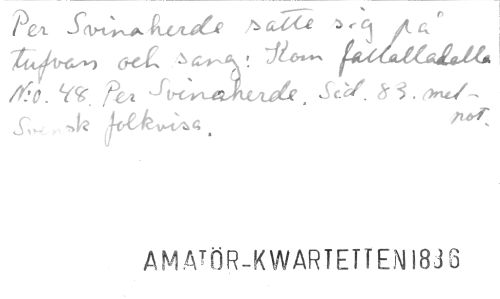 Per Svinaherde satte sig på
tufvan och sang: Kom fallalladella
N:o. 48. Per Svinaherde. Sid. 83. mel-
Svensk folkvisa. not.
AMATÖR-KWARTETTEN 1836